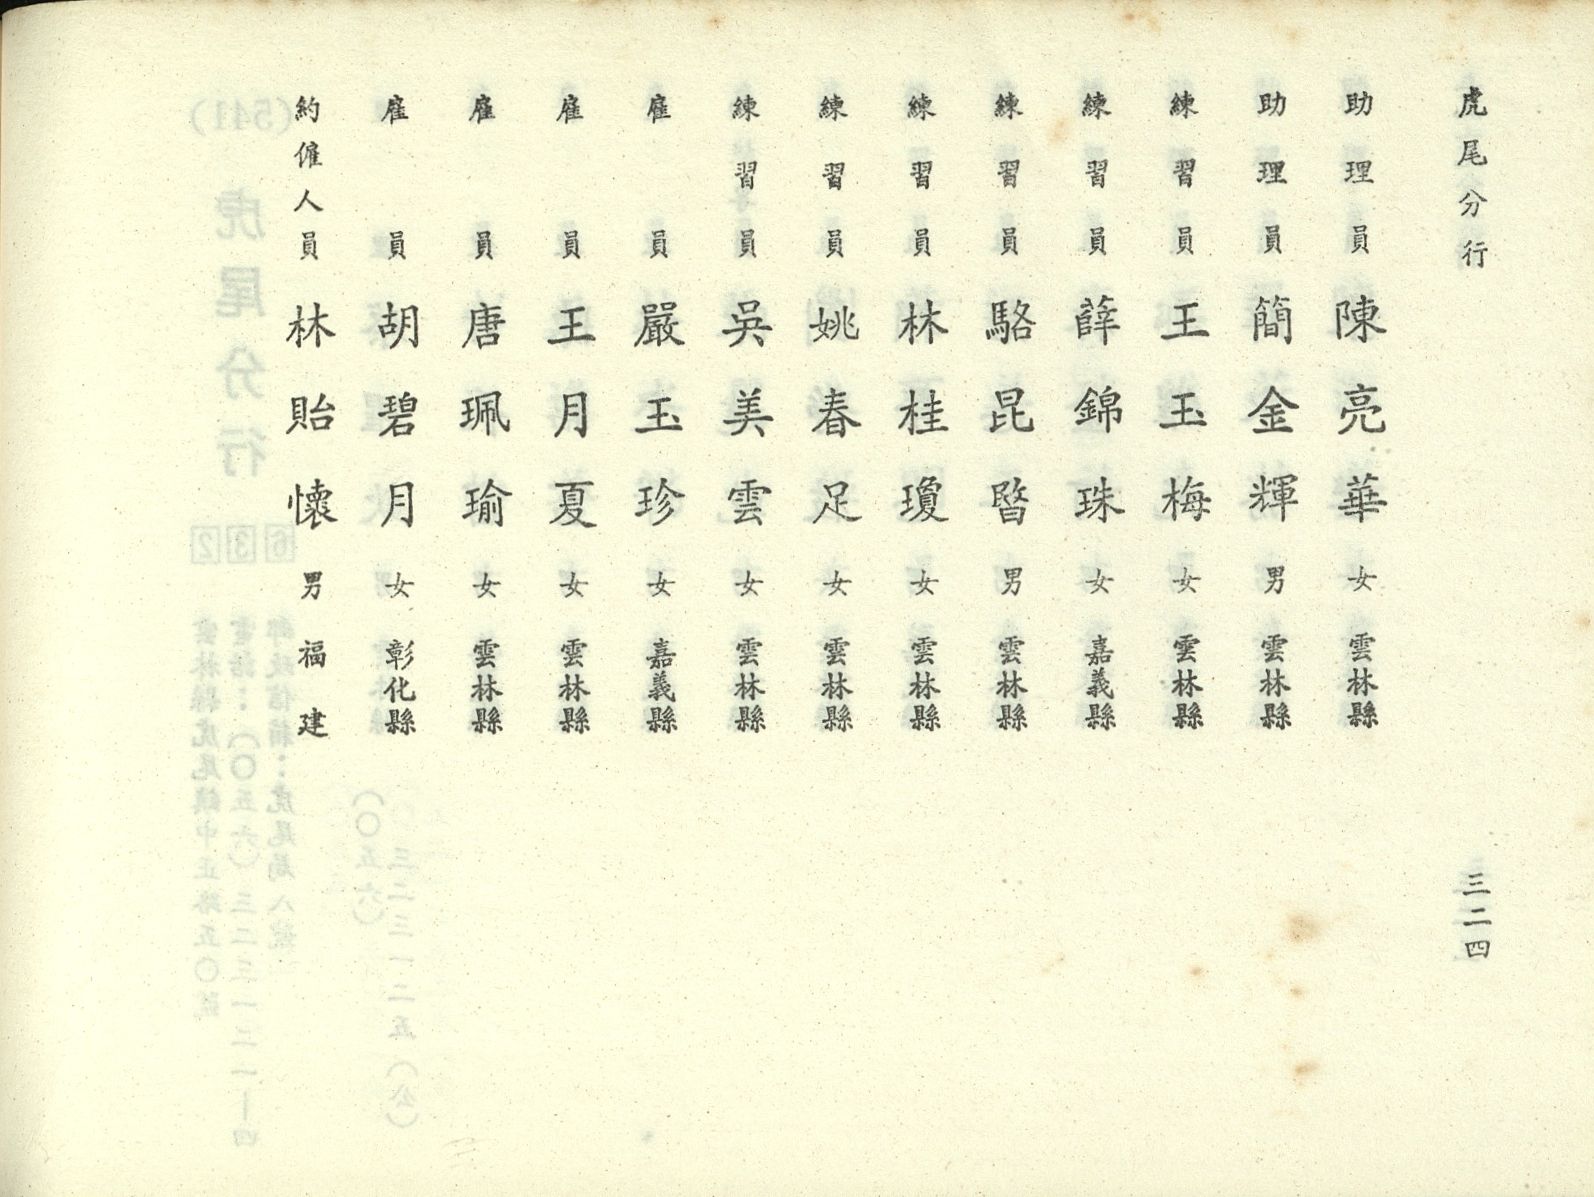 虎尾分行
助理員 陳亮華 女 雲林縣
助理員 簡金輝 男 雲林縣
練習員 王玉梅 女 雲林縣
練習員 薛錦珠 女 嘉義縣
練習員 駱昆暋 男 雲林縣
練習員 林桂瓊 女 雲林縣
練習員 姚春足 女 雲林縣
練習員 吳美雲 女 雲林縣
雇員 嚴玉珍 女 嘉義縣
雇員 王月夏 女 雲林縣
雇員 唐珮瑜 女 雲林縣
雇員 胡碧月 女 彰化縣
約僱人員 林貽懷 男 福建
三二四